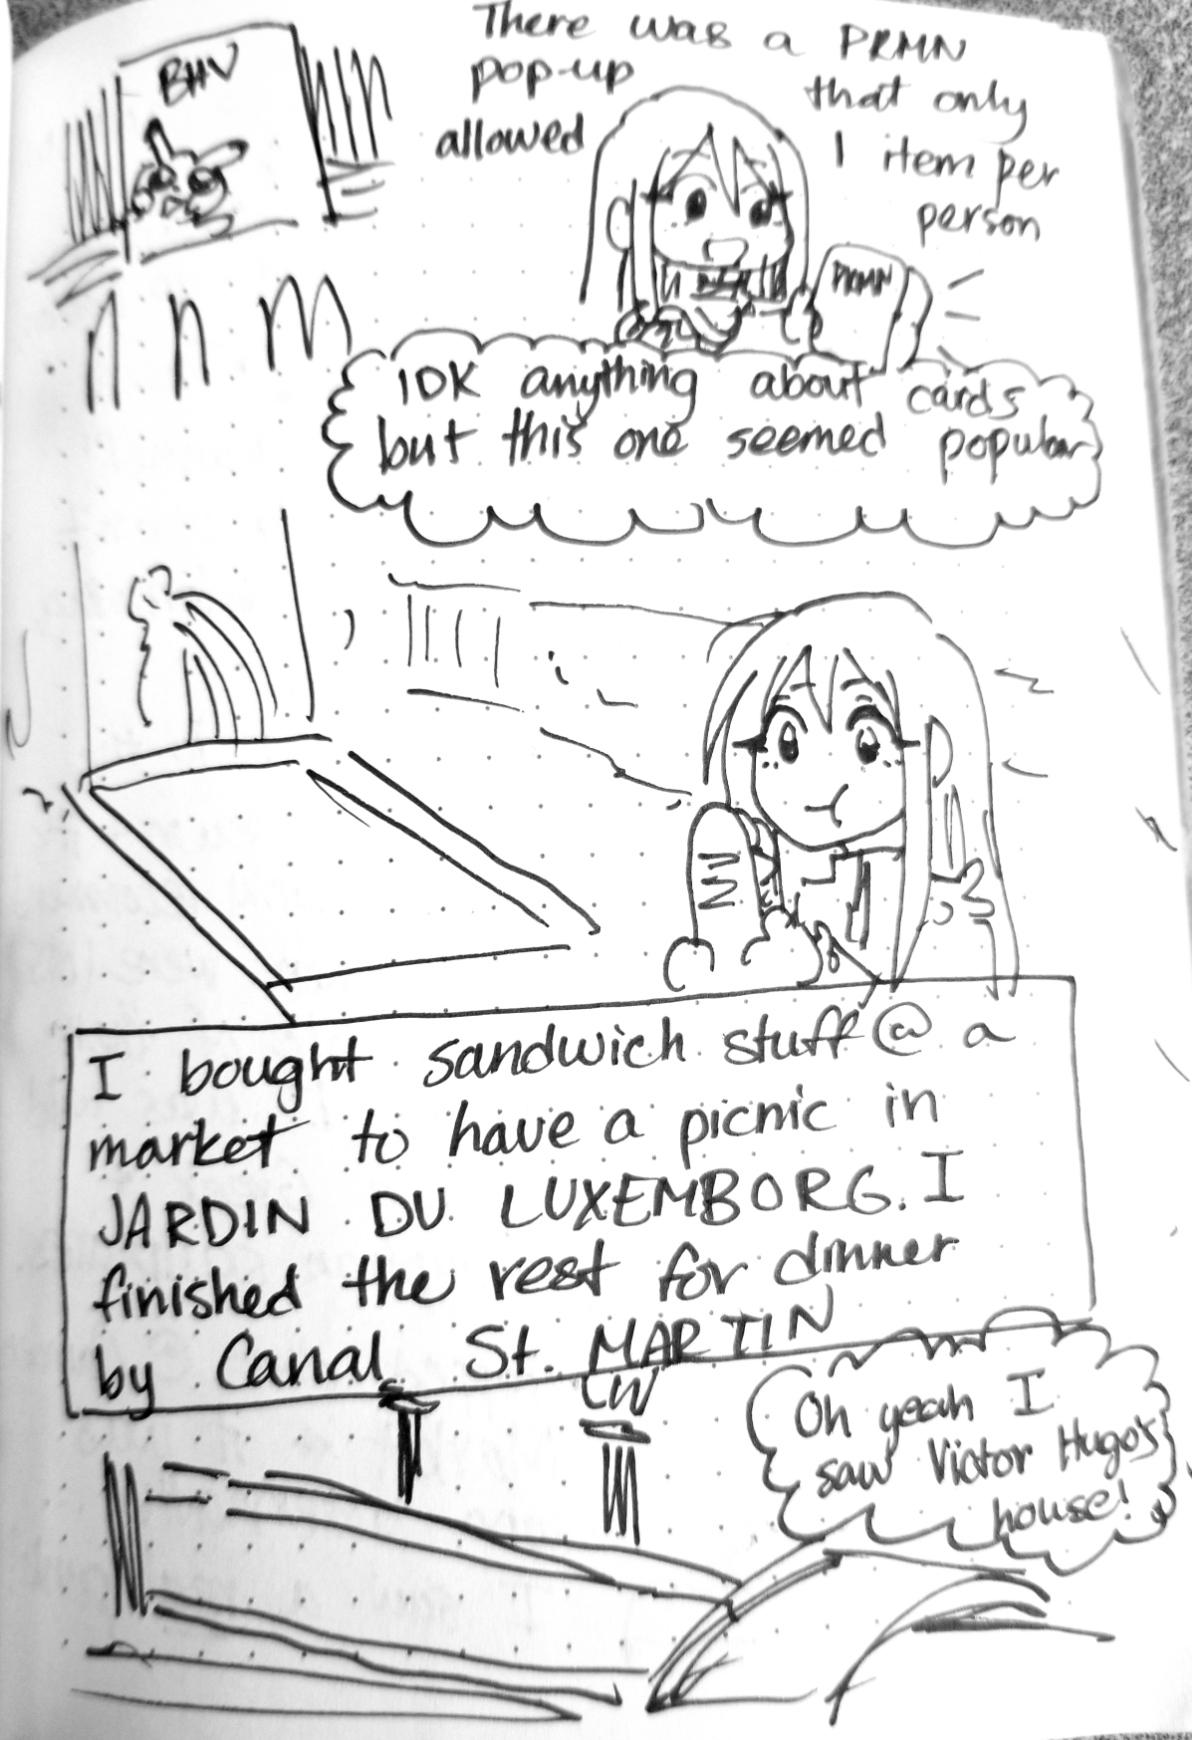 BHV
There was a PRMN
pop-up that only
allowed 1 item per
person
PKMN
IDK anything about cards
but this one seemed popular
I bought sandwich stuff @ a
market to have a picnic in
JARDIN DU LUXEMBORG. I
finished the rest for dinner
by Canal St. MARTIN
Oh yeah I
saw Victor Hugo's
house!